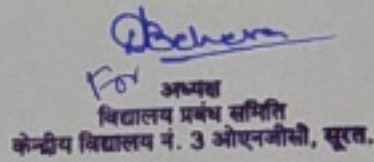 For
अध्यक्ष
विद्यालय प्रबंध समिति
केन्द्रीय विद्यालय नं. 3 ओएनजीसी, सूरत.